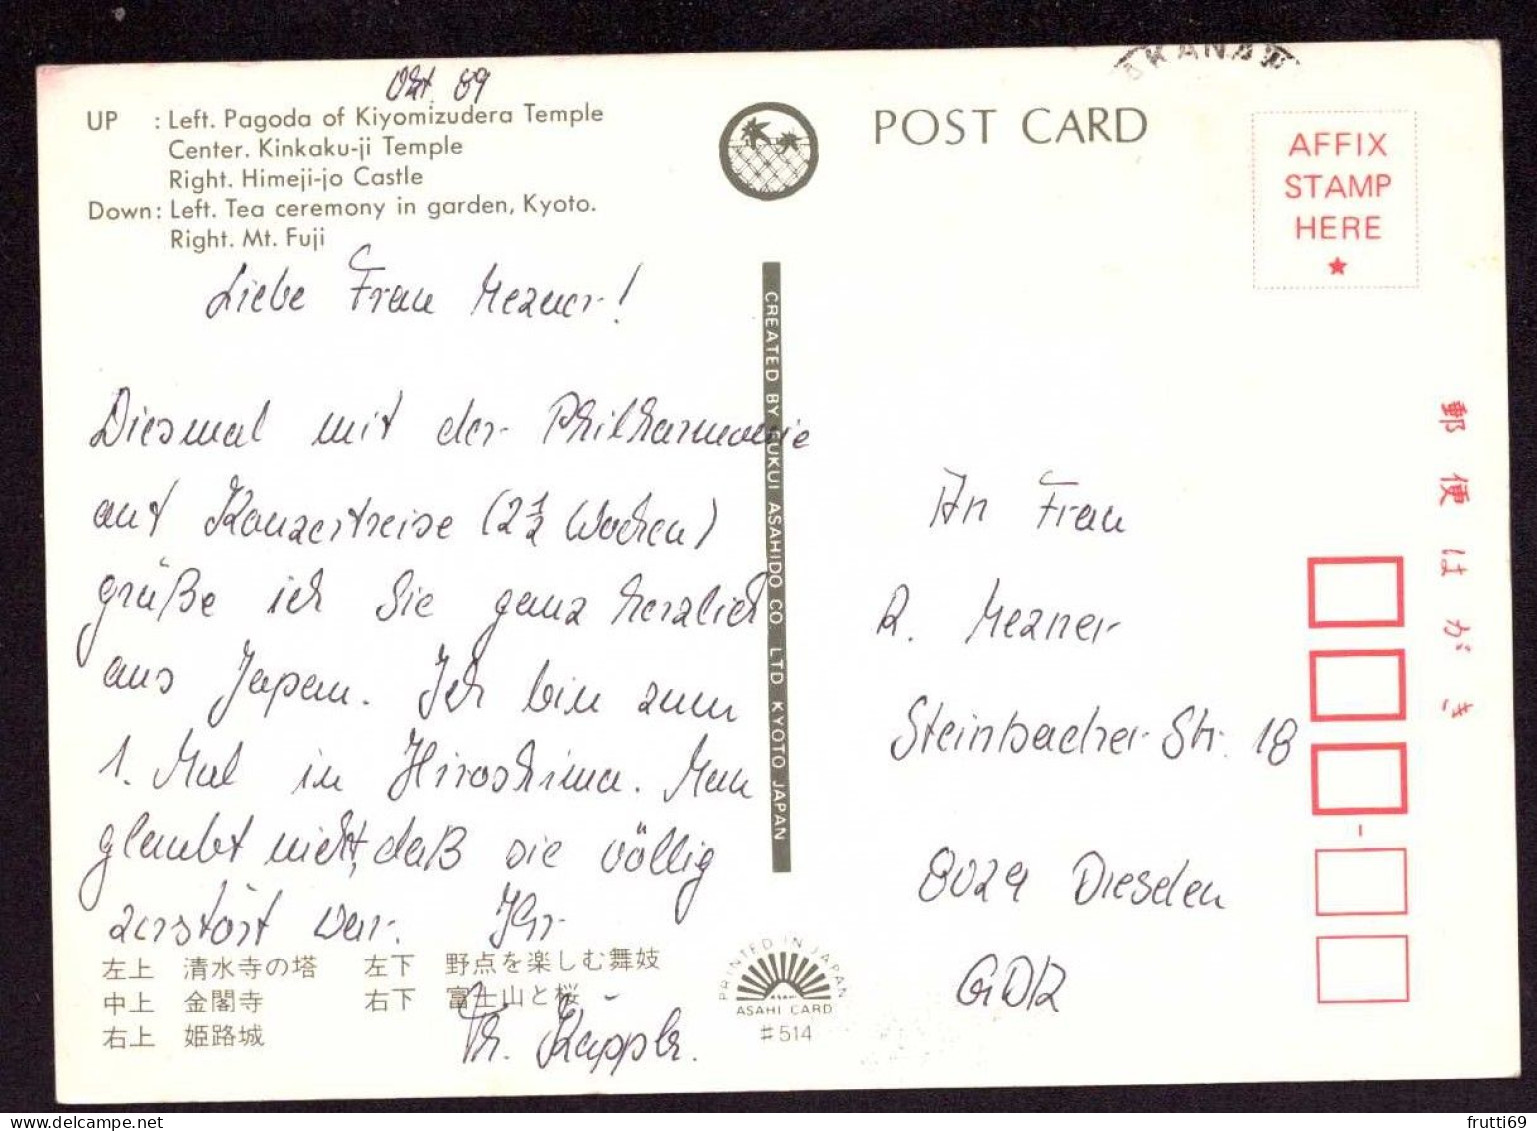 Okt. 89
UP : Left. Pagoda of Kiyomizudera Temple
Center. Kinkaku-ji Temple
Right. Himeji-jo Castle
Down: Left. Tea ceremony in garden, Kyoto.
Right. Mt. Fuji
Liebe Frau Mezner!
Diesmal mit der Philharmonie
auf Konzertreise (2 1/2 Wochen)
grüße ich Sie ganz herzlich
aus Japan. Ich bin zum
1. Mal in Hiroshima. Man
glaubt nicht, daß sie völlig
zerstört war. Ihr
Th. Käppler.
左上 清水寺の塔 左下 野点を楽しむ舞妓
中上 金閣寺 右下 富士山と桜
右上 姫路城
CREATED BY FUKUI ASAHIDO CO. LTD KYOTO JAPAN
PRINTED IN JAPAN
ASAHI
ASAHI CARD
#514
POST CARD
KANA
AFFIX
STAMP
HERE
★
郵便はがき
An Frau
R. Mezner
Steinbacher Str. 18
8029 Dresden
GDR
frutti69